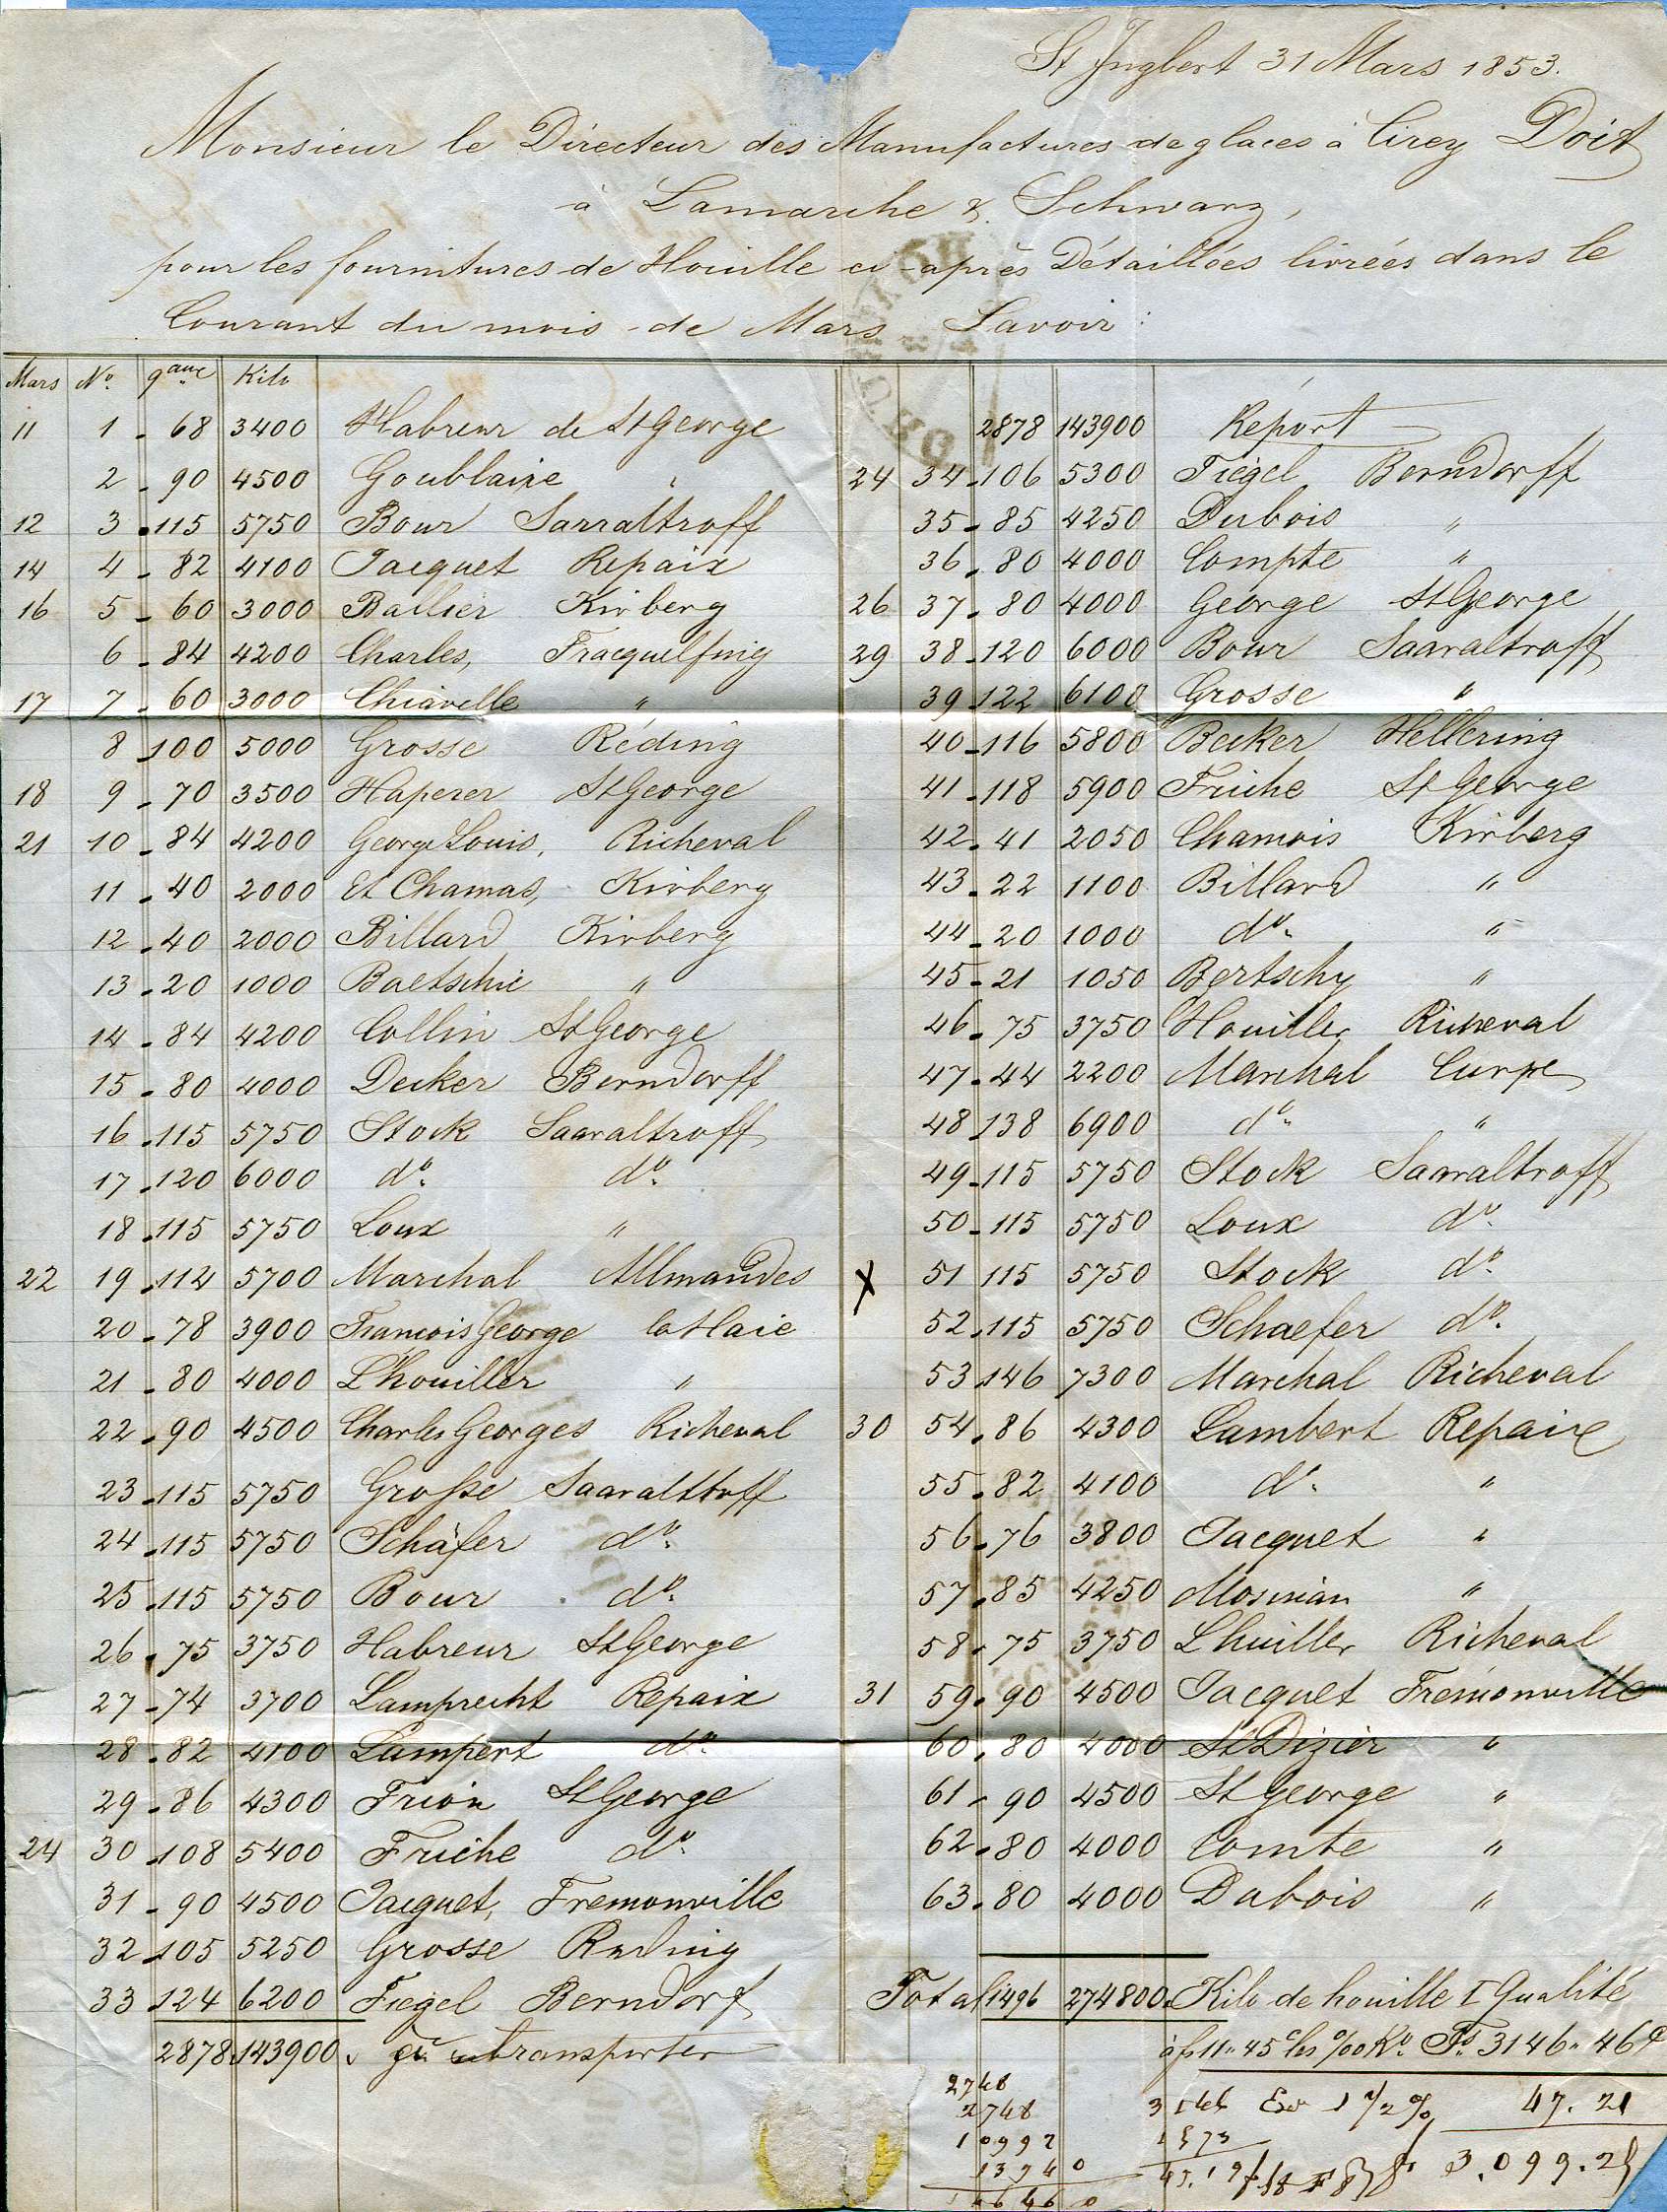 St Jngbert 31 Mars 1853.
Monsieur le Directeur des Manufactures de glaces à Cirey Doit
à Lamarche & Schwarz,
pour les fournitures de Houille ci-après Détaillées livrées dans le
Courant du mois de Mars Savoir:
Mars No. qaux Kilo
11 1 68 3400 Habreur de St George
2 90 4500 Goublaire "
12 3 115 5750 Bour Sarraltroff
14 4 82 4100 Jacquet Repaix
16 5 60 3000 Ballier Kirberg
6 84 4200 Charles, Fracquelfing
17 7 60 3000 Chiavelle "
8 100 5000 Grosse Réding
18 9 70 3500 Haperer St George
21 10 84 4200 George Louis, Richeval
11 40 2000 Et Chamas, Kirberg
12 40 2000 Billard Kirberg
13 20 1000 Baetschie "
14 84 4200 Collin St George
15 80 4000 Decker Berndorff
16 115 5750 Stock Saaraltroff
17 120 6000 do. do.
18 115 5750 Loux "
22 19 114 5700 Marchal Allmandes
20 78 3900 François George la Haie
21 80 4000 L'houiller "
22 90 4500 Charles Georges Richeval
23 115 5750 Große Saaralttroff
24 115 5750 Schäfer do.
25 115 5750 Bour do.
26 75 3750 Habreur St George
27 74 3700 Lamprecht Repaix
28 82 4100 Lampert do.
29 86 4300 Frion St George
24 30 108 5400 Friche do.
31 90 4500 Jacquet, Fremonville
32 105 5250 Grosse Reding
33 124 6200 Fiegel Berndorf
2878 143900 transporter
2878 143900 Report
24 34 106 5300 Fiegel Berndorff
35 85 4250 Dubois "
36 80 4000 Compte "
26 37 80 4000 George St George
29 38 120 6000 Bour Saaraltroff
39 122 6100 Grosse "
40 116 5800 Becker Hellering
41 118 5900 Friche St George
42 41 2050 Chamois Kirberg
43 22 1100 Billard "
44 20 1000 do. "
45 21 1050 Bertschy "
46 75 3750 Houiller Richeval
47 44 2200 Marchal Curpe
48 138 6900 do. "
49 115 5750 Stock Saaraltroff
50 115 5750 Loux do.
X 51 115 5750 Stock do.
52 115 5750 Schaefer do.
53 146 7300 Marchal Richeval
30 54 86 4300 Lambert Repaix
55 82 4100 do. "
56 76 3800 Jacquet "
57 85 4250 Mosman "
58 75 3750 Lhuiller Richeval
31 59 90 4500 Jacquet Frémonville
60 80 4000 St Dizier "
61 90 4500 St George "
62 80 4000 Comte "
63 80 4000 Dubois "
Total 1496 274800 Kilo de houille I Qualité
à f 11" 45 c les %00 Ko. Fs. 3146" 46c
2748 3146 1 1/2 % 47.21
2748 1573
10992 3.099.25
13740 47.19